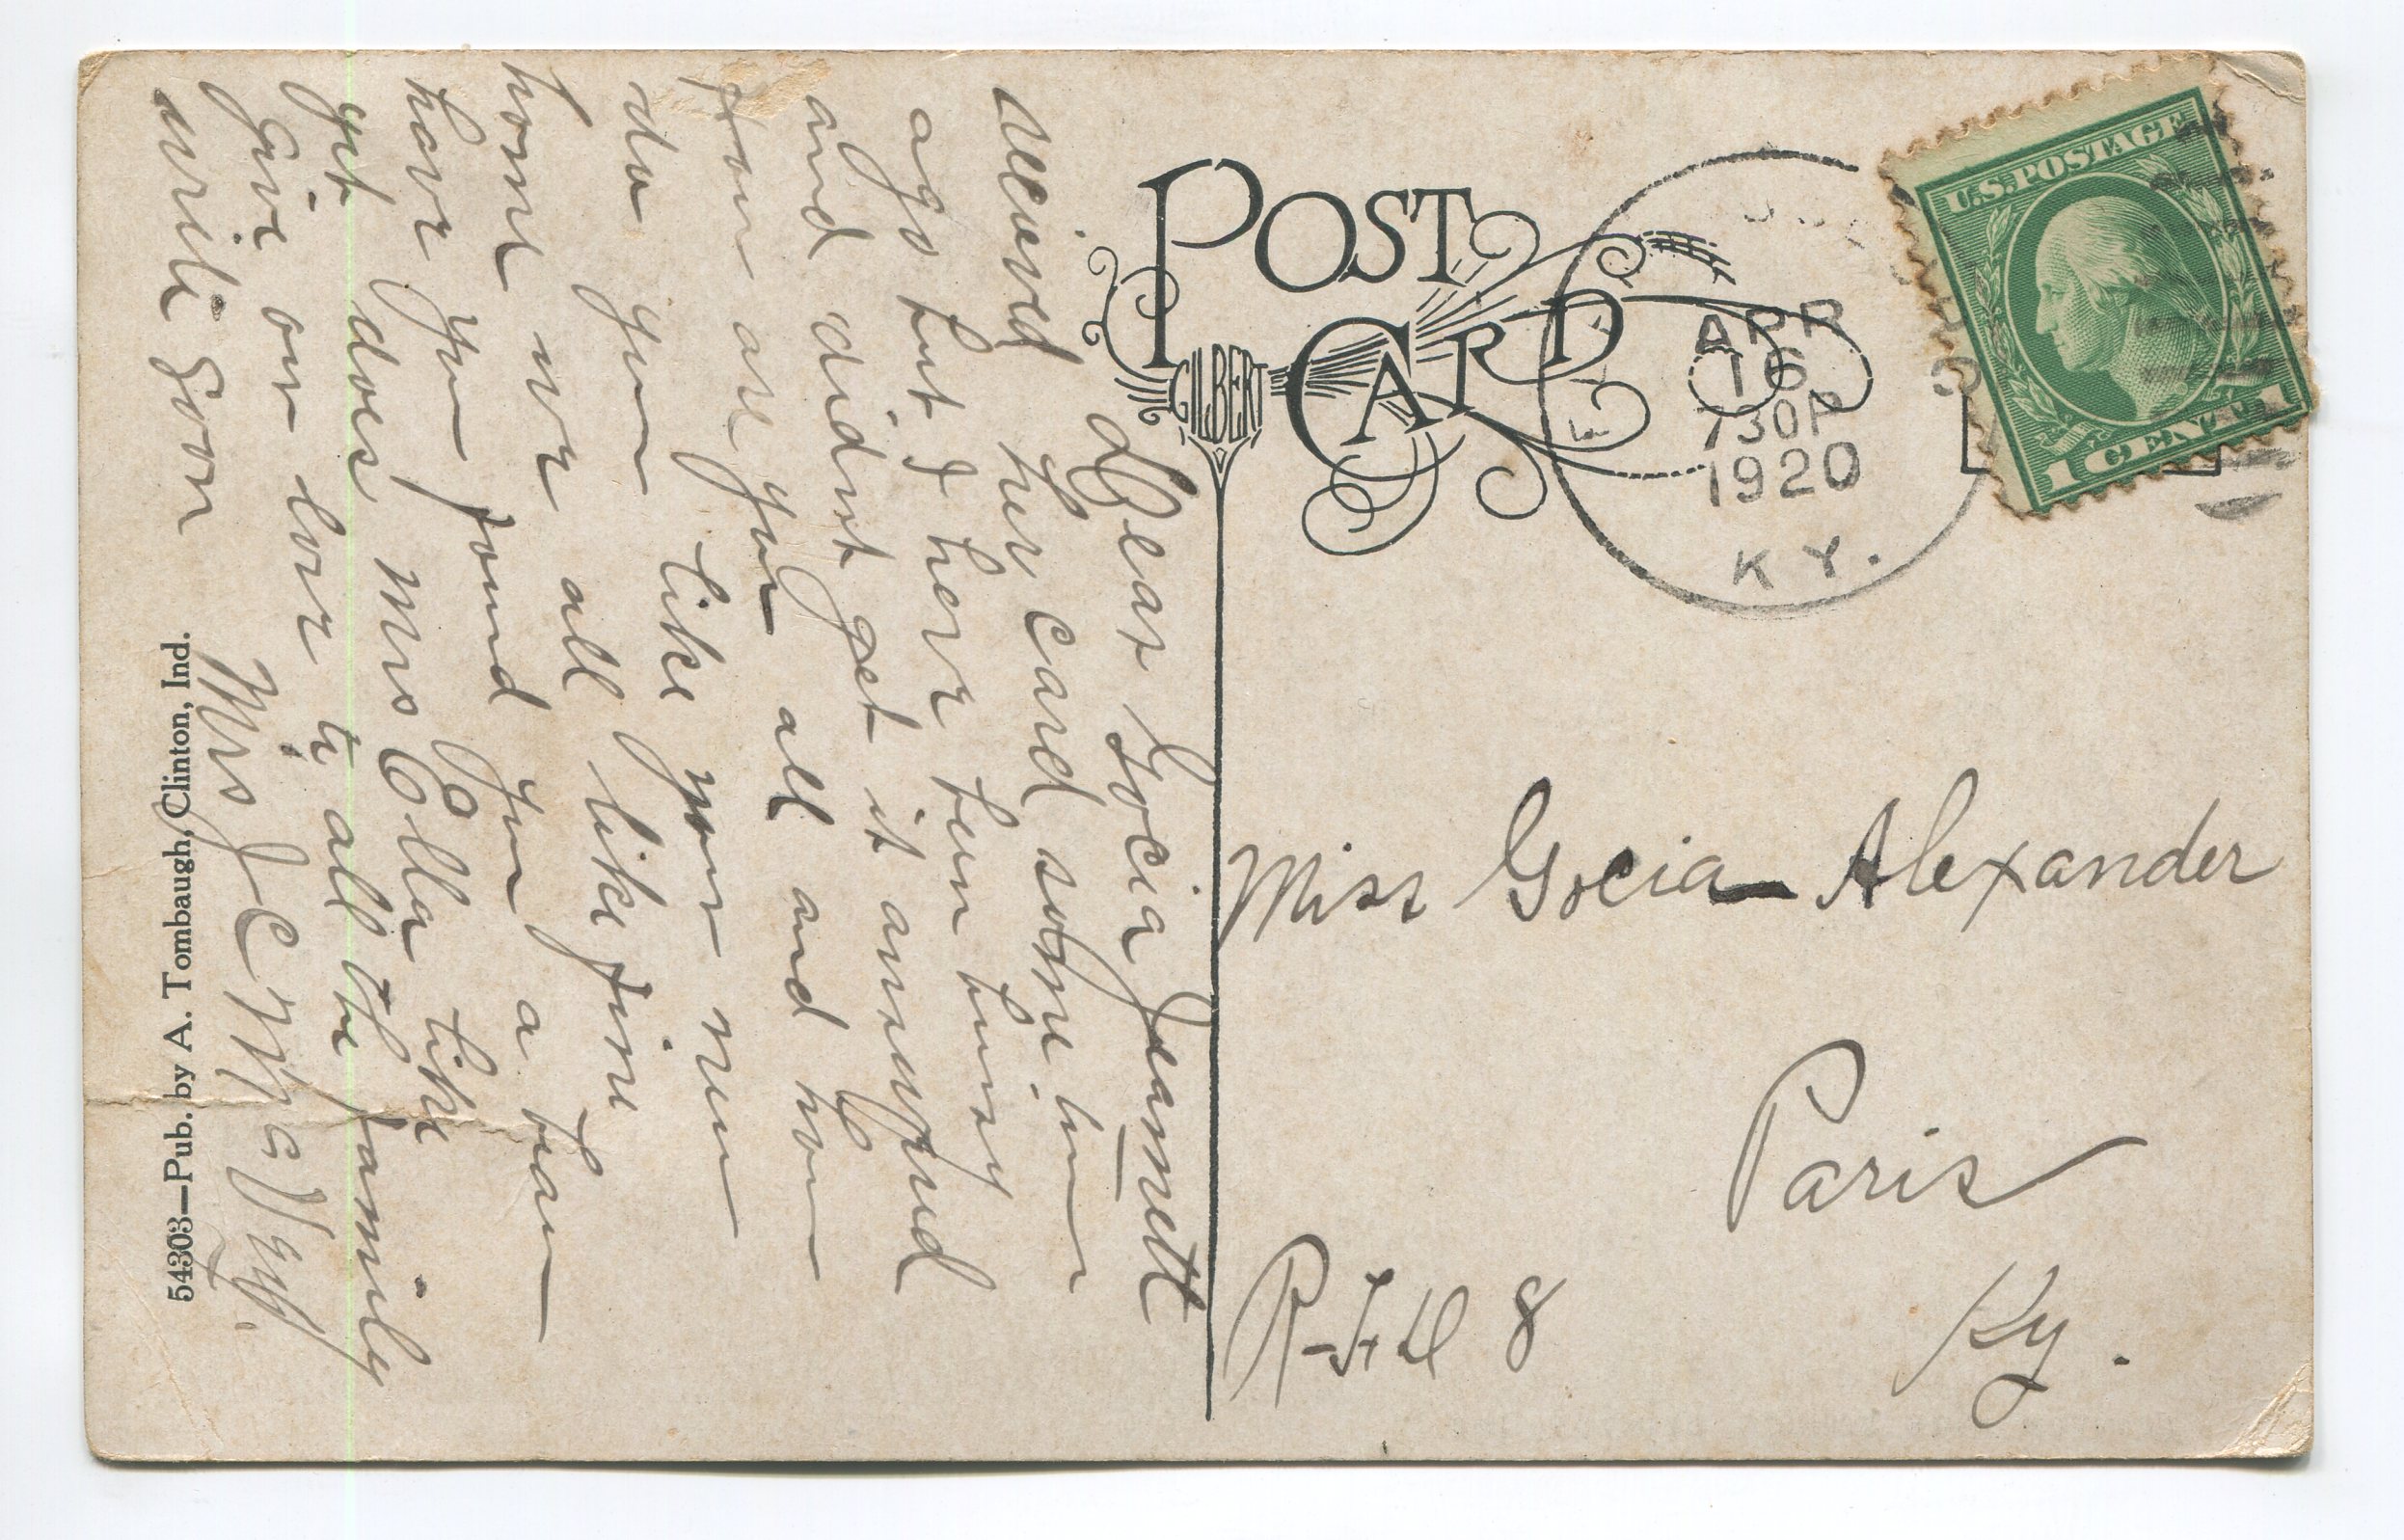 POST
CARD
GILBERT
U.S. POSTAGE
1 CENT 1
APR
16
730P
1920
KY.
Miss Gocia Alexander
Paris
Ky.
R-F-D 8
Dear Gocia Jeanett
recieved your card some time
ago but I have been busy
and didnt get it answered
how are you all and how
do you like your new
home we all like fine
have you found you a beau
yet does Mrs Ella like
Give our love to all the family
write soon Mrs J C
54303—Pub. by A. Tombaugh, Clinton, Ind.